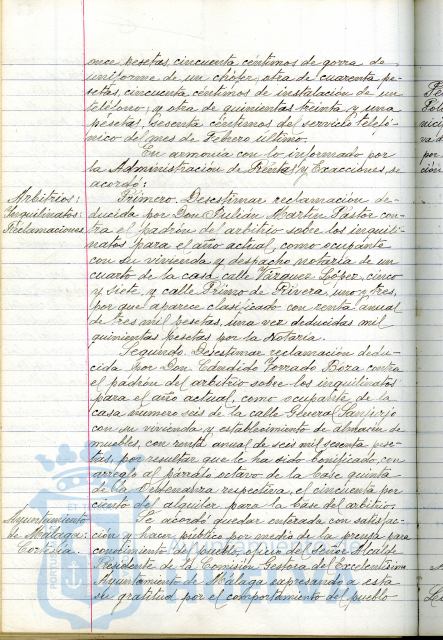 once pesetas, cincuenta céntimos de gorra de
uniforme de un chófer, otra de cuarenta pe-
setas, cincuenta céntimos de instalación de un
teléfono; y otra de quinientas treinta y una
pesetas, sesenta céntimos del servicio telefó-
nico del mes de Febrero último.
En armonía con lo informado por
la Administración de Rentas y Exacciones, se
acordó:
Arbitrios:
Inquilinatos:
Reclamaciones
Primero. Desestimar reclamación de-
ducida por Don Julián Martín Pastor con-
tra el padrón del arbitrio sobre los inquili-
natos para el año actual, como ocupante
con su vivienda y despacho notaría de un
cuarto de la casa calle Vázquez López, cinco
y siete, y calle Primo de Rivera, uno y tres,
por que aparece clasificado con renta anual
de tres mil pesetas, una vez deducidas mil
quinientas pesetas por la Notaría.
Segundo. Desestimar reclamación dedu-
cida por Don Cándido Torrado Boza contra
el padrón del arbitrio sobre los inquilinatos
para el año actual, como ocupante de la
casa número seis de la calle General Sanjurjo
con su vivienda y establecimiento de almacén de
muebles, con renta anual de seis mil sesenta pese-
tas, por resultar que le ha sido bonificado, con
arreglo al párrafo octavo de la base quinta
de la Ordenanza respectiva, el cincuenta por
ciento del alquiler para la base del arbitrio.
Ayuntamiento
de Málaga:
Cortesía.
Se acordó quedar enterada con satisfac-
ción y hacer público por medio de la prensa para
conocimiento del pueblo, oficio del Señor Alcalde
Presidente de la Comisión Gestora del Excelentísimo
Ayuntamiento de Málaga expresando a esta
su gratitud por el comportamiento del pueblo